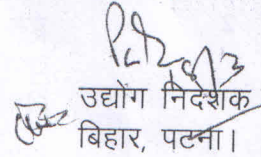 उद्योंग निदेशक
बिहार, पटना।